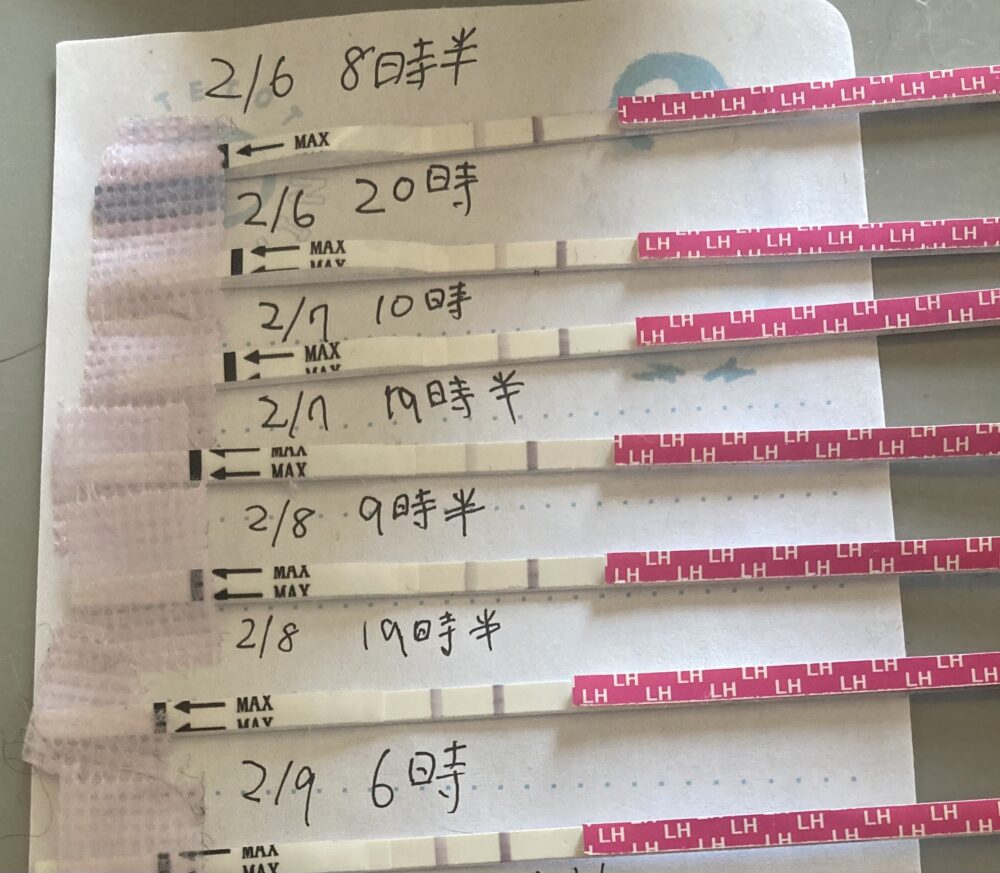 2/6 8時半
MAX
2/6 20時
MAX
MAX
2/7 10時
MAX
MAX
2/7 19時半
MAX
MAX
2/8 9時半
MAX
MAX
2/8 19時半
MAX
MAX
2/9 6時
MAX
MAX
LH LH LH LH LH LH
LH LH LH LH LH LH
LH LH LH LH LH LH
LH LH LH LH LH LH
LH LH LH LH LH LH
LH LH LH LH LH LH
LH LH LH LH LH LH